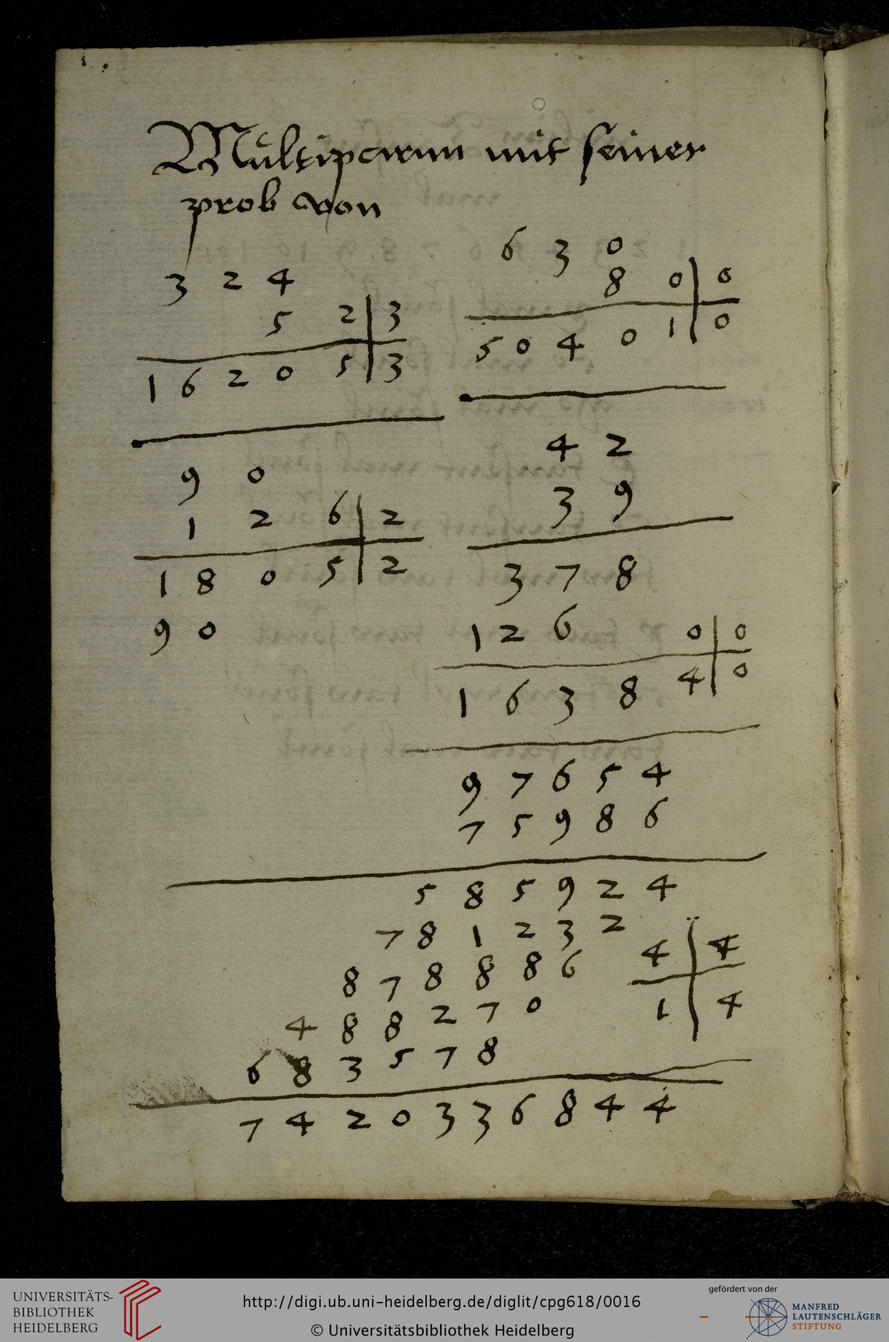 Multiparum mit seiner
prob von
3 2 4
5 2 3
1 6 2 0 5 3
9 0
1 2 6 2
1 8 0 5 2
9 0
6 3 0
8 0 0
5 0 4 0 1 0
4 2
3 9
3 7 8
1 2 6 0 0
1 6 3 8 4 0
9 7 6 5 4
7 5 9 8 6
5 8 5 9 2 4
7 8 1 2 3 2
4 4
8 7 8 8 8 6
4 8 8 2 7 0
1 4
6 8 3 5 7 8
7 4 2 0 3 3 6 8 4 4
UNIVERSITÄTS-
BIBLIOTHEK
HEIDELBERG
http://digi.ub.uni-heidelberg.de/diglit/cpg618/0016
© Universitätsbibliothek Heidelberg
gefördert von der
MANFRED
LAUTENSCHLÄGER
STIFTUNG